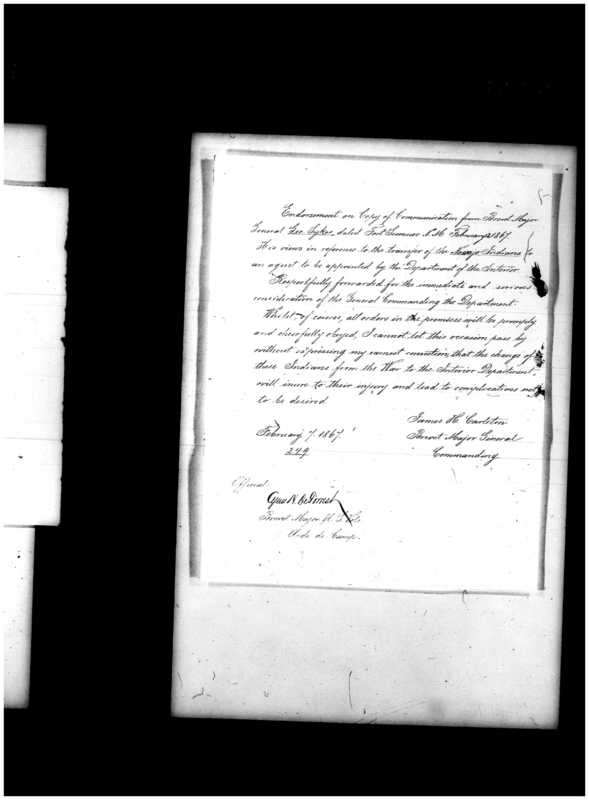 Endorsement on Copy of Communication from Brevet Major
General Geo. Sykes, dated Fort Sumner N.M. February 1867.
His views in reference to the transfer of the Navajo Indians to
an agent to be appointed by the Department of the Interior.
Respectfully forwarded for the immediate and serious
consideration of the General Commanding the Department.
Whilst, of course, all orders in the premises will be promptly
and cheerfully obeyed, I cannot let this occasion pass by
without expressing my earnest conviction that the change of
these Indians from the War to the Interior Department,
will inure to their injury and lead to complications not
to be desired
James H. Carleton
February 7. 1867.
Brevet Major General
Commanding
Official
Brevet Major U.S. Vols
Aide de Camp.